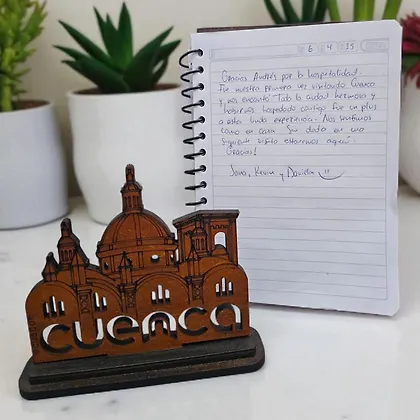 6 4 25
Gracias Andrés por la hospitalidad.
Fue nuestra primera vez visitando Cuenca
y nos encantó. Toda la ciudad hermosa y
habernos hospedado contigo fue un plus
a esta linda experiencia. Nos sentimos
como en casa. Sin duda en una
siguiente visita estaremos aquí.
Gracias!
Kevin y Daniela
cuenca